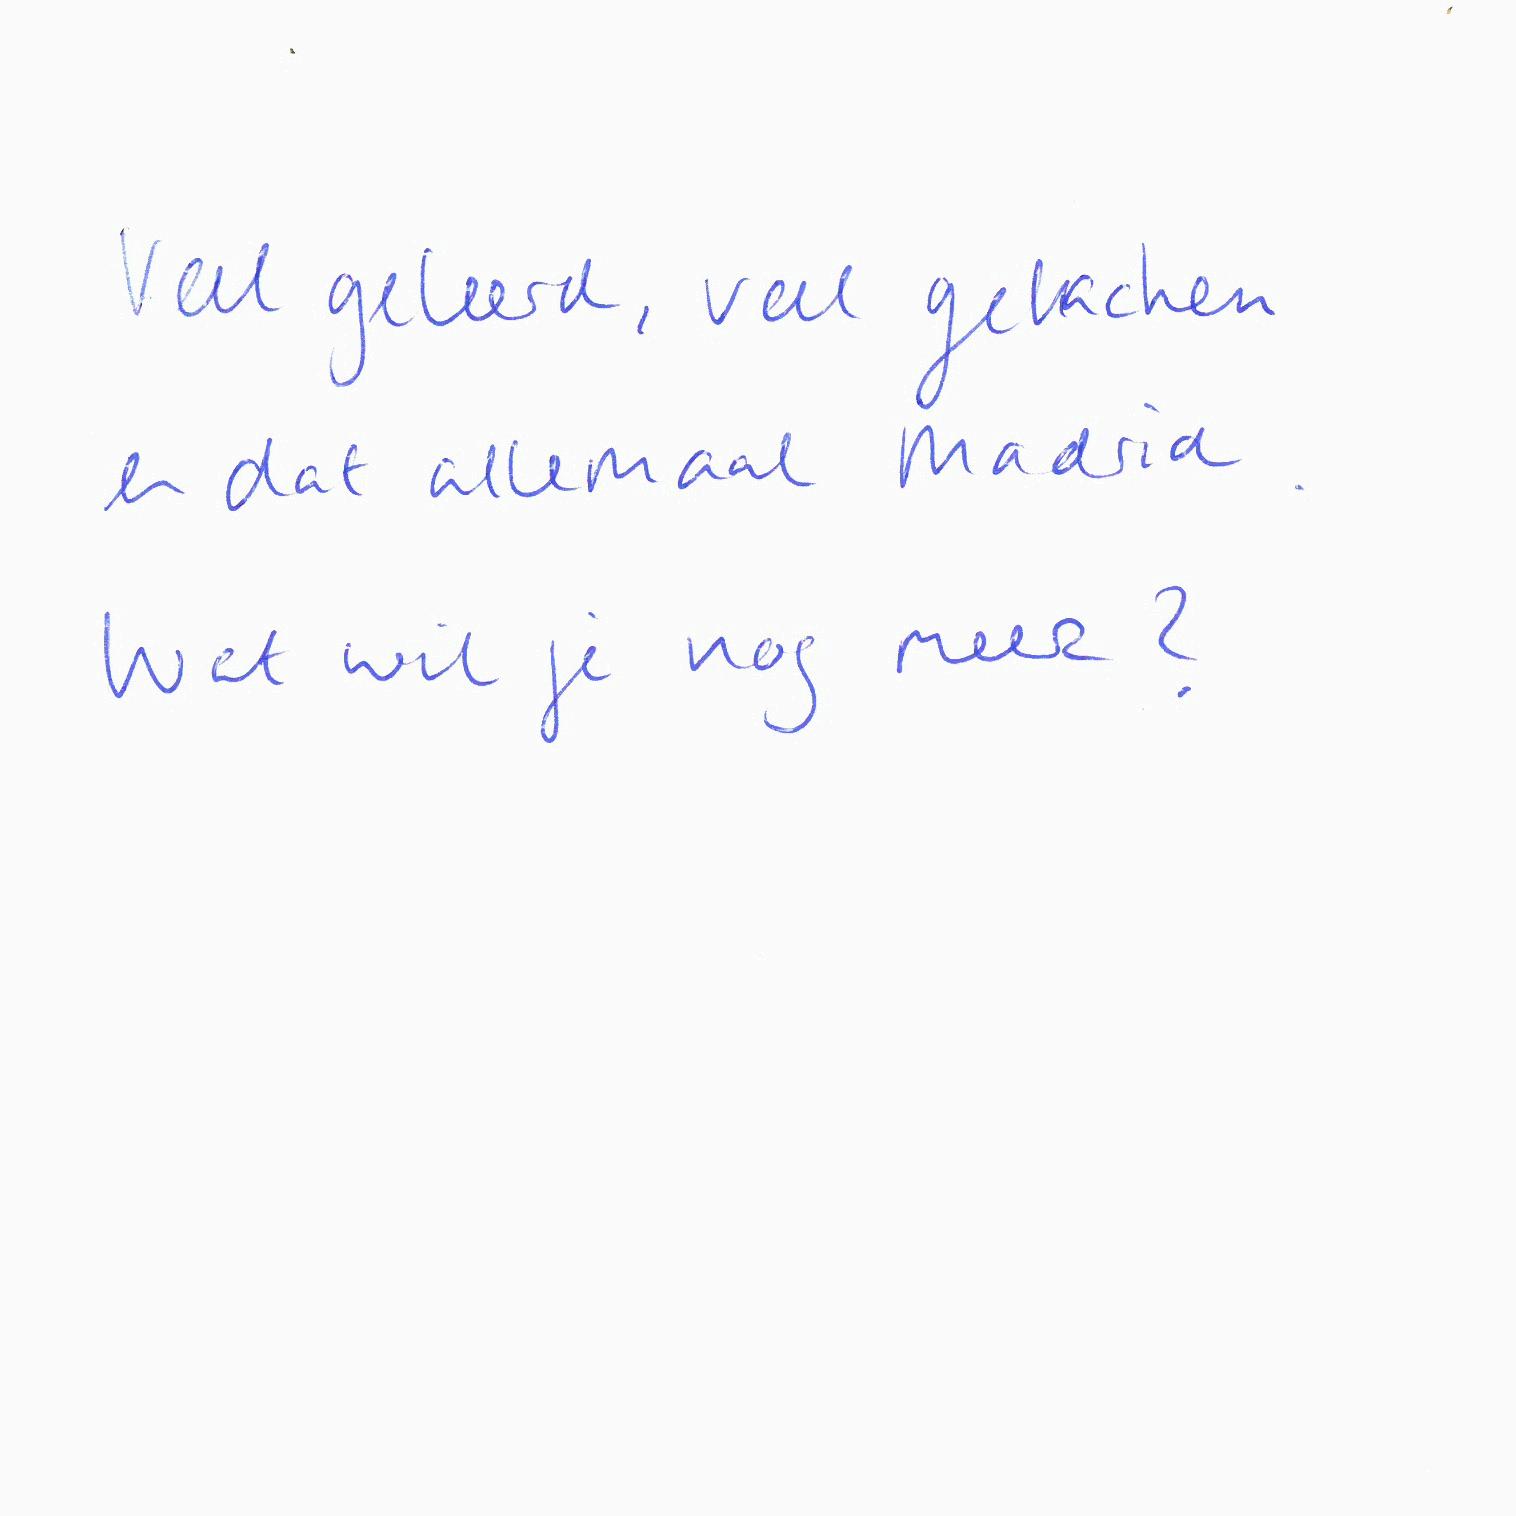 Veel geleerd, veel gelachen
en dat allemaal Madrid.
Wat wil je nog meer?